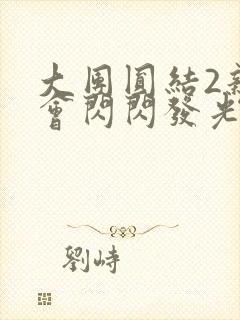 大團圓結2
會閃閃發光
劉峙